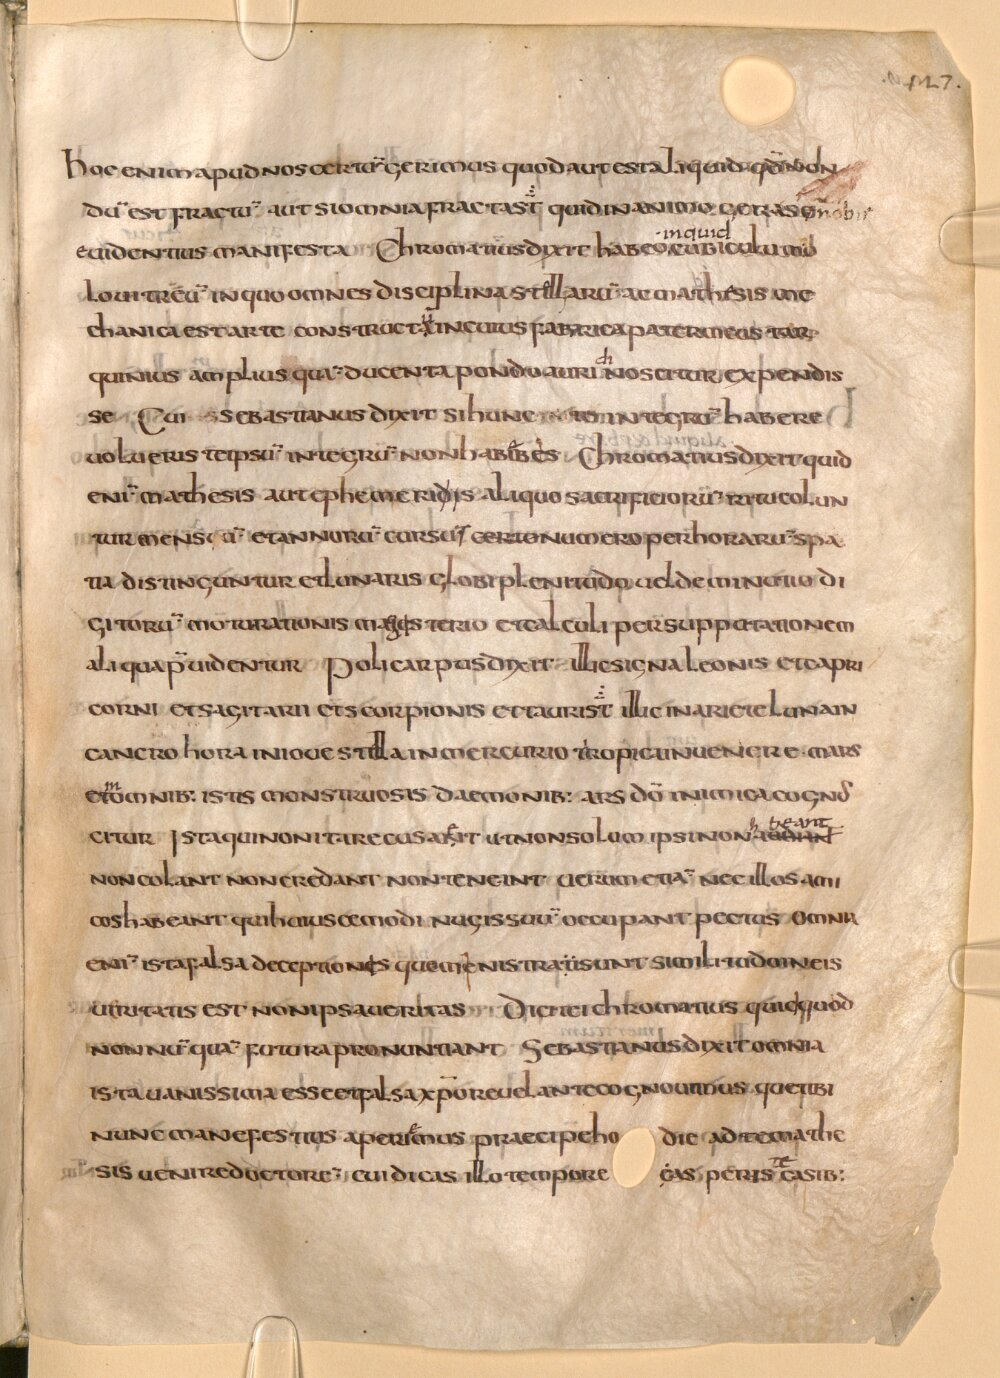 hoc enim apud nos certū gerimus quod aut est aliquid qd non
dū est fractū aut si omnia fracta st quid in animo geras
euidentius manifesta Chromatius dixit habeo inquid cubiculum
in quo omnes disciplina stellarū ac mathesis me
chanica est arte constructa in cuius fabrica pater meus tar
quinius amplius quā ducenta pondo auri noscitur expendis
se Cui sebastianus dixit si hunc integrū habere
uolueris teipsū integrū non habebes Chromatius dixit quid
enī mathesis aut ephemeridis aliquo sacrificiorū ritu colun
tur mensuū et annorū cursus certo numero per horarū spa
tia distinguntur et lunaris globi plenitudo uel deminutio di
gitorū motu rationis magisterio et calculi per supputationem
aliqua p̄uidentur Policarpus dixit illic signa leonis et capri
corni et sagitarii et scorpionis et tauri st illic in ariete luna in
cancro hora in ioue stella in mercurio tropica in uenere mars
et omnib: istis monstruosis daemonib: ars dō inimica cogno
citur Ista qui non itarecusarit ut non solum ipsi non habeant
non colant non credant non teneint uerum etiā nec illos ami
cos habeant qui huiuscemodi nugis suū occupant pectus omnia
enī ista falsa deceptiones sunt simili
ueritatis est non ipsa ueritas Dicit ei chromatius quid quod
non nū quā futura pronuntiant Sebastianus dixit omnia
ista uanissima esse et falsa xp̄o reuelante cognouimus que tibi
nunc manefestius aperimus praecipe ho die ad te mathe
sis uenire doctorē cui dicas illo tempore casib: